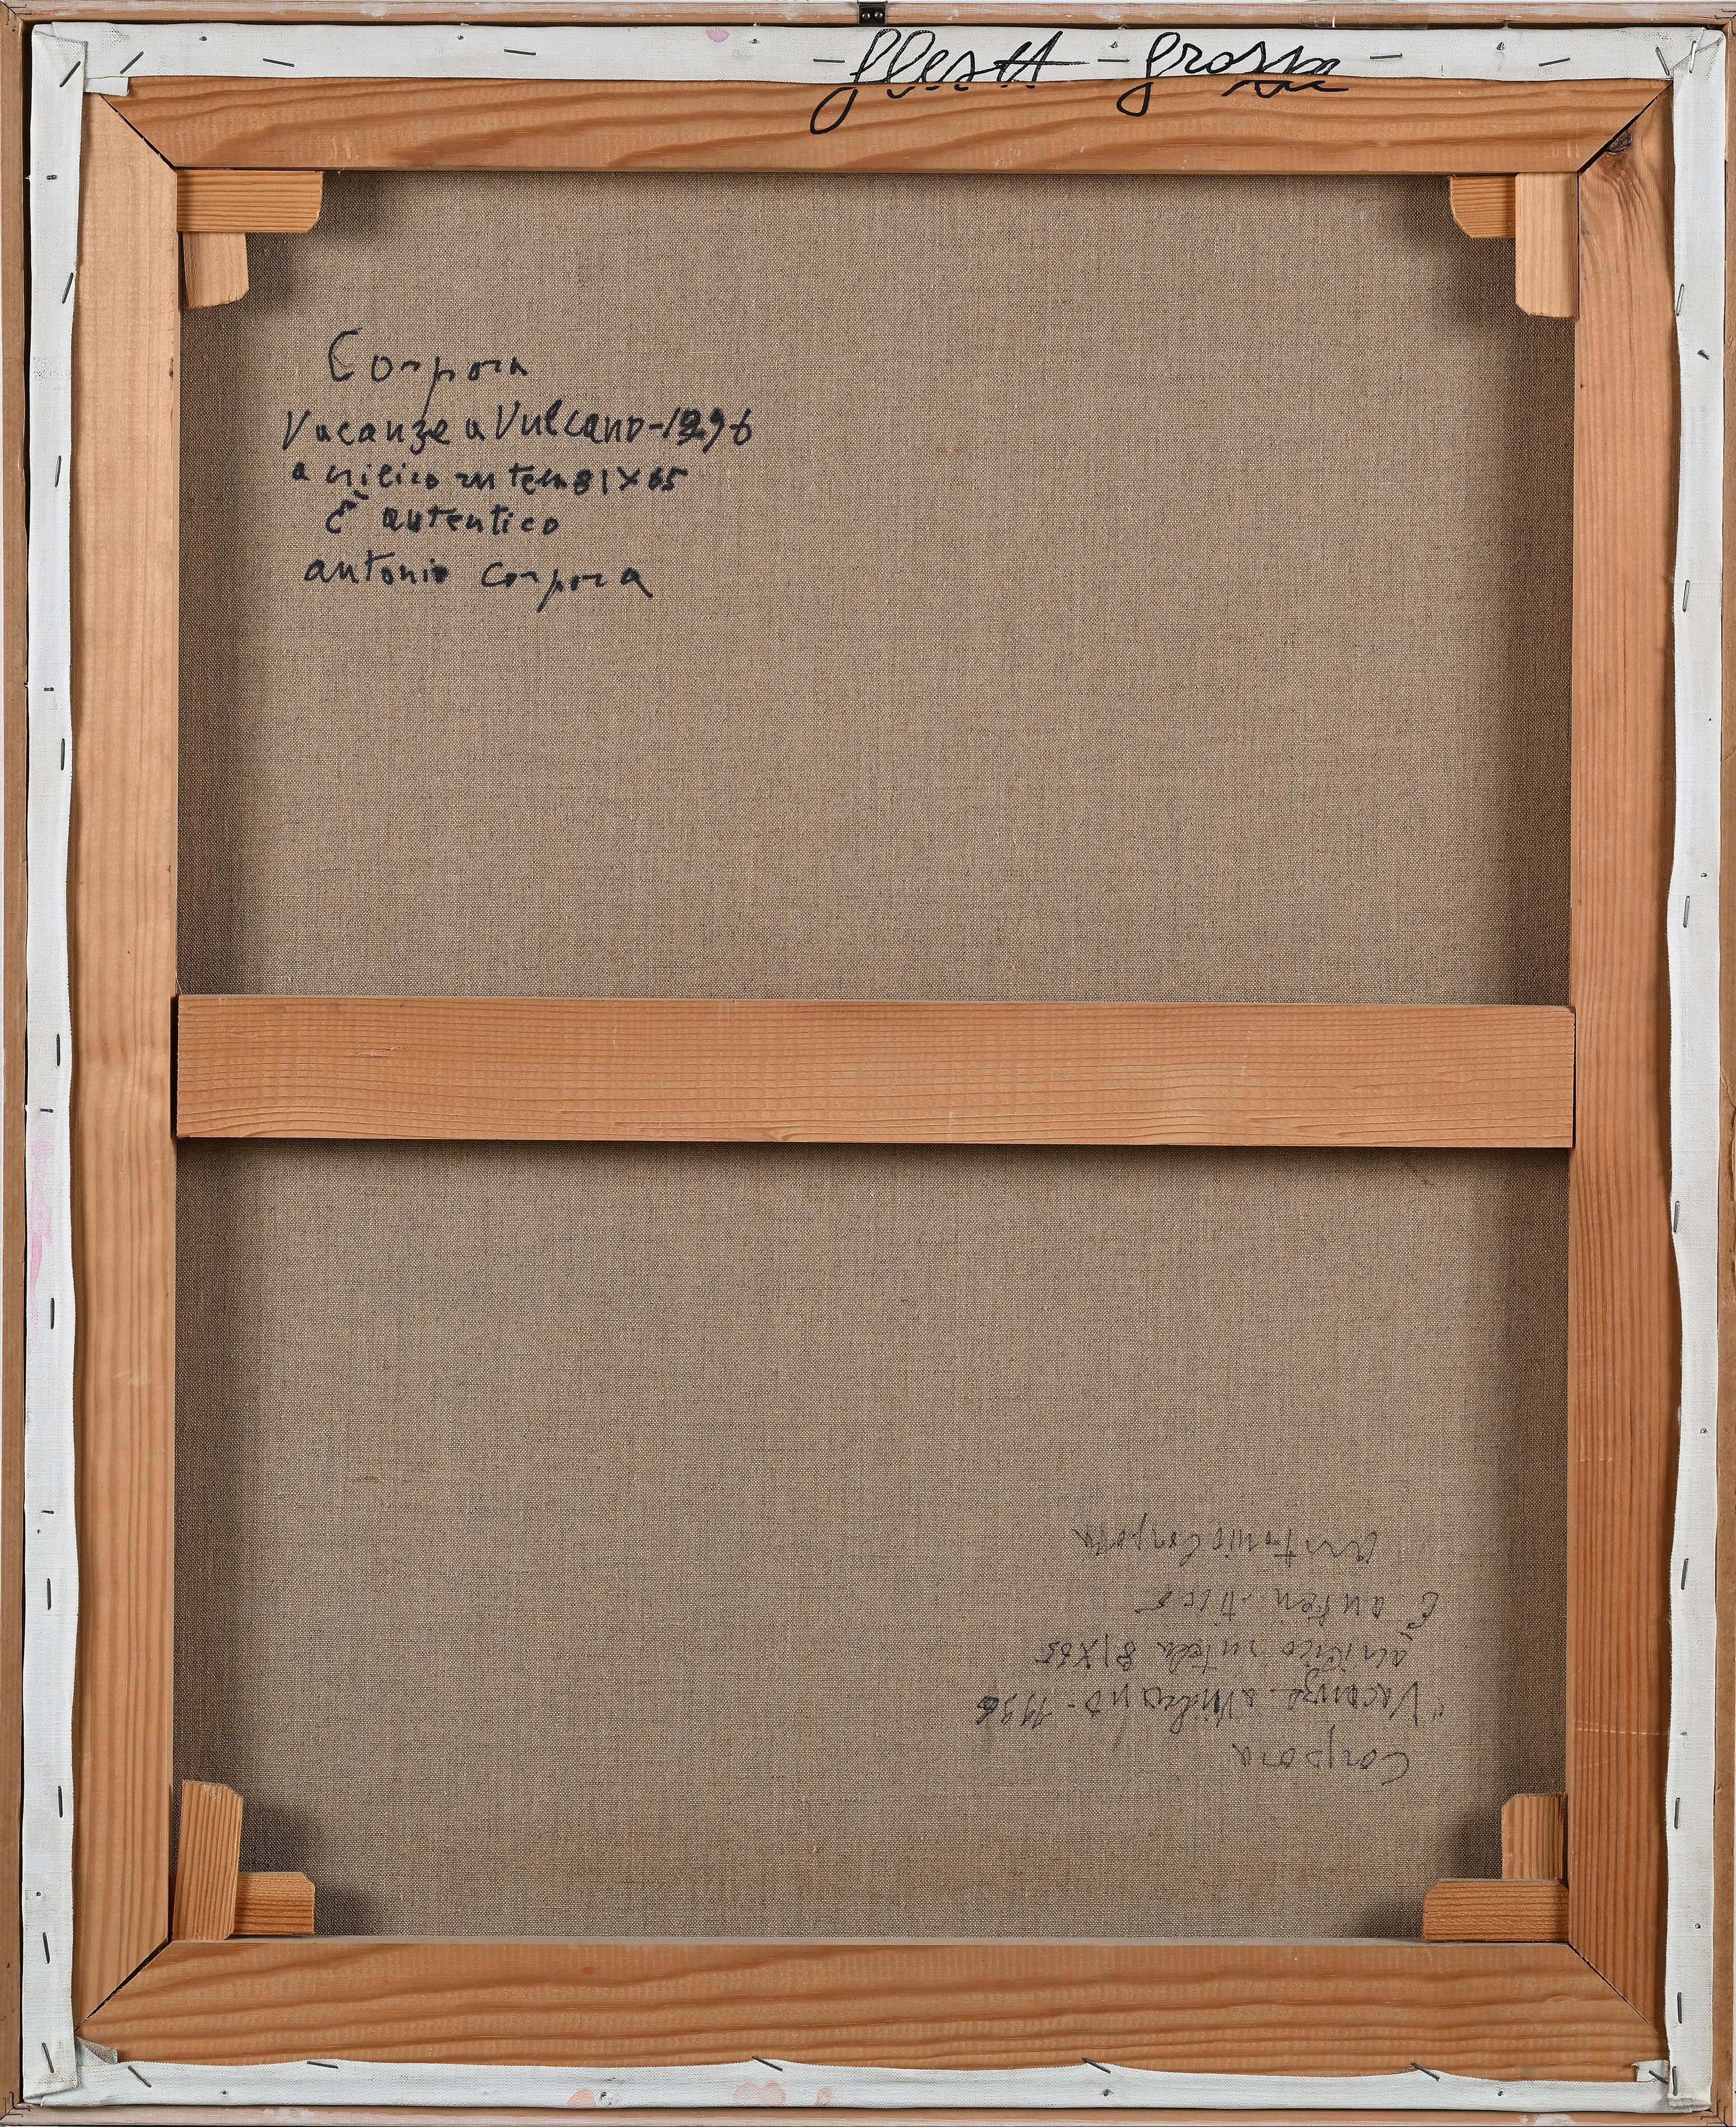 Corpora
Vacanze a Vulcano-1996
acrilico su tela 81X65
È autentico
antonio Corpora
Corpora
"Vacanze a Vulcano - 1996
acrilico su tela 81X65
È autentico
Antonio Corpora